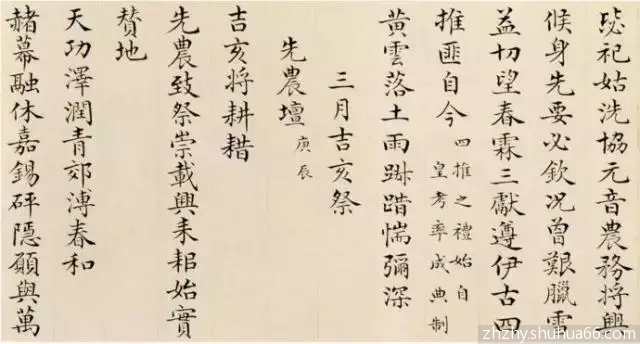 毖祀姑洗協元音農務將興
候身先要必欽况曾艱臘雪
益切望春霖三獻遵伊古四
推匪自今 四推之禮始自
皇考率成典制
黄雲落土雨踧踖惴彌深
三月吉亥祭
先農壇 庚辰
吉亥将耕耤
先農致祭崇載興耒耜始實
賛地
天功澤潤青郊溥春和
赭幕融休嘉錫砰隱願與萬
zhzhy.shuhua66.com